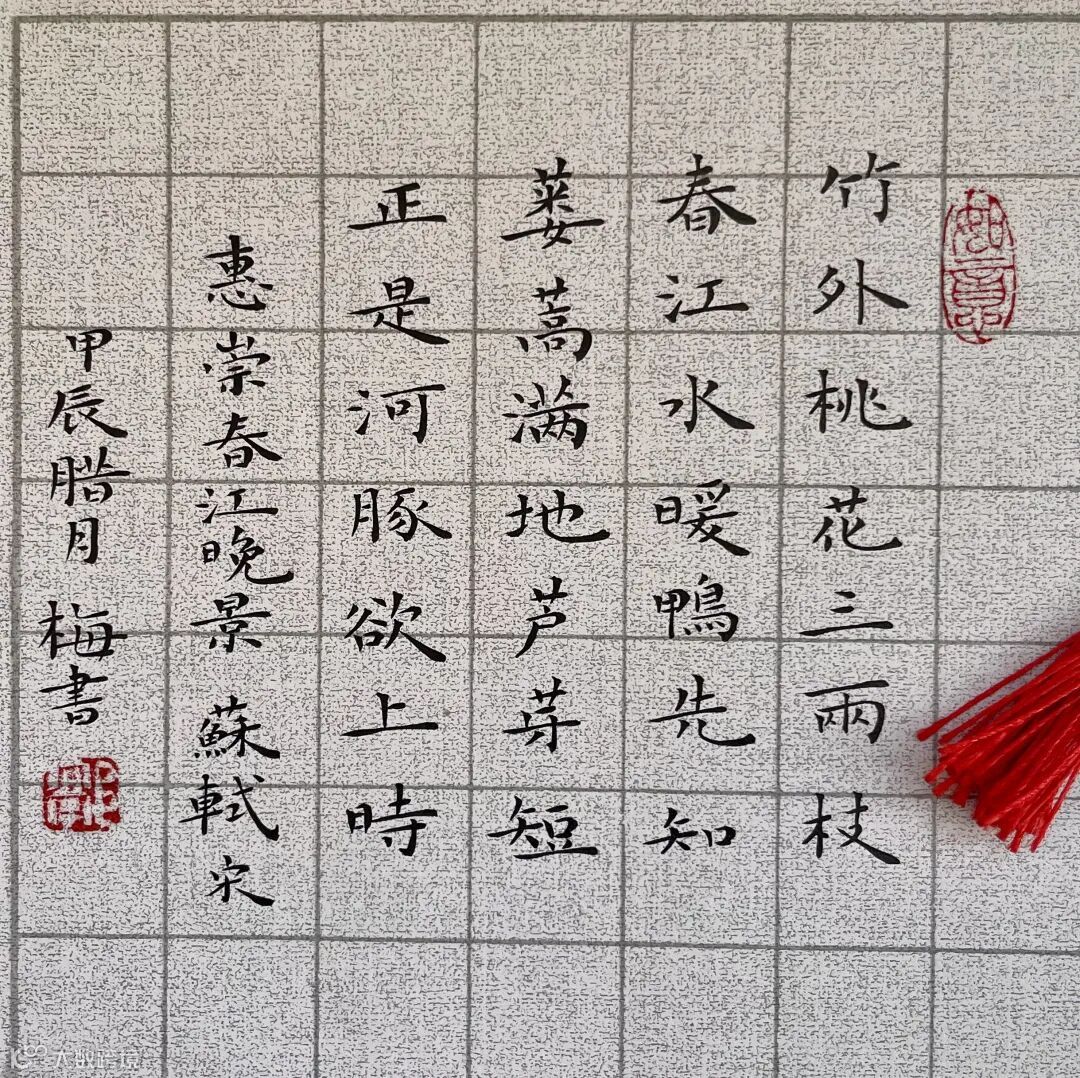 如意
竹外桃花三兩枝
春江水暖鴨先知
蒌蒿满地芦芽短
正是河豚欲上時
惠崇春江晚景 蘇軾 宋
甲辰腊月 梅書
大数跨境